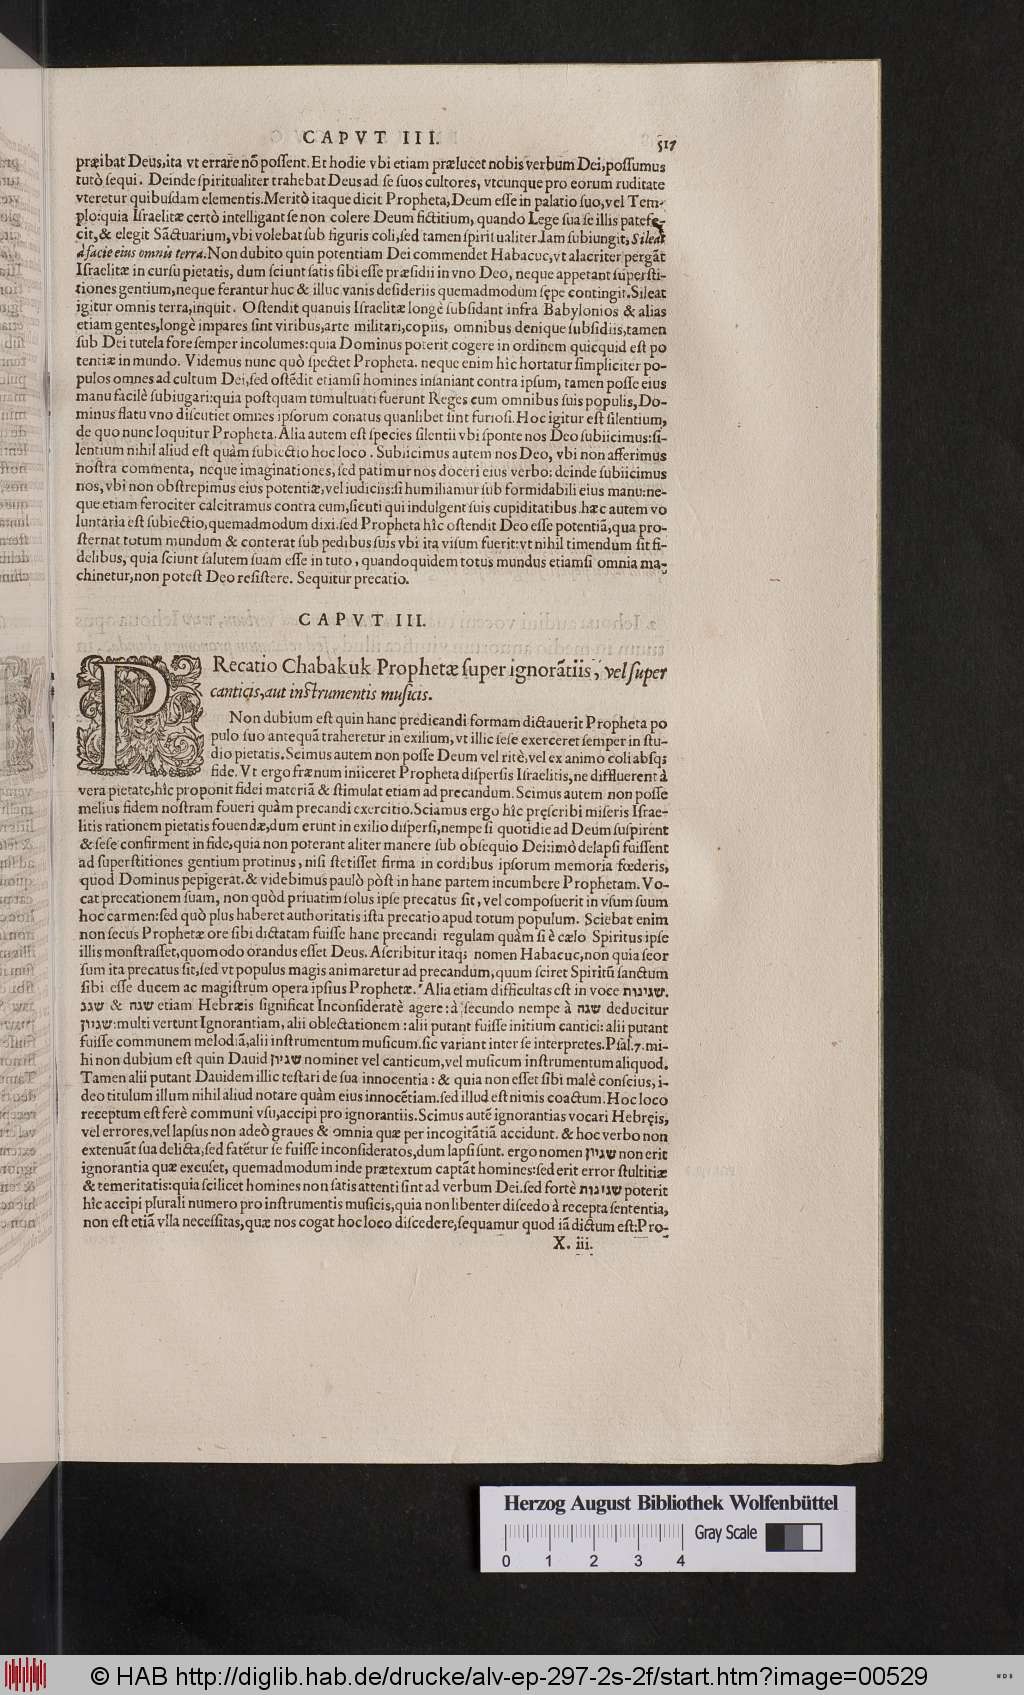 CAPVT III.
517
præibat Deus,ita vt errare nõ poſſent. Et hodie vbi etiam prælucet nobis verbum Dei,poſſumus
tutò ſequi. Deinde ſpiritualiter trahebat Deus ad ſe ſuos cultores, vtcunque pro eorum ruditate
vteretur quibuſdam elementis.Meritò itaque dicit Propheta,Deum eſſe in palatio ſuo,vel Tem-
plo:quia Iſraelitæ certò intelligant ſe non colere Deum fictitium, quando Lege ſua ſe illis patefe-
cit,& elegit Sãctuarium,vbi volebat ſub figuris coli,ſed tamen ſpiritualiter.Iam ſubiungit, Sileat
à facie eius omnis terra.Non dubito quin potentiam Dei commendet Habacuc,vt alacriter pergãt
Iſraelitæ in curſu pietatis, dum ſciunt ſatis ſibi eſſe præſidii in vno Deo, neque appetant ſuperſti-
tiones gentium,neque ferantur huc & illuc vanis deſideriis quemadmodum ſępe contingit.Sileat
igitur omnis terra,inquit. Oſtendit quanuis Iſraelitæ longè ſubſidant infra Babylonios & alias
etiam gentes,longè impares ſint viribus,arte militari,copiis, omnibus denique ſubſidiis,tamen
ſub Dei tutela fore ſemper incolumes:quia Dominus poterit cogere in ordinem quicquid eſt po
tentiæ in mundo. Videmus nunc quò ſpectet Propheta. neque enim hîc hortatur ſimpliciter po-
pulos omnes ad cultum Dei,ſed oſtẽdit etiamſi homines inſaniant contra ipſum, tamen poſſe eius
manu facilè ſubiugari:quia poſtquam tumultuati fuerunt Reges cum omnibus ſuis populis,Do-
minus flatu vno diſcutiet omnes ipſorum conatus quanlibet ſint furioſi.Hoc igitur eſt ſilentium,
de quo nunc loquitur Propheta. Alia autem eſt ſpecies ſilentii vbi ſponte nos Deo ſubiicimus:ſi-
lentium nihil aliud eſt quàm ſubiectio hoc loco. Subiicimus autem nos Deo, vbi non afferimus
noſtra commenta, neque imaginationes,ſed patimur nos doceri eius verbo: deinde ſubiicimus
nos,vbi non obſtrepimus eius potentiæ,vel iudiciis:ſi humiliamur ſub formidabili eius manu:ne-
que etiam ferociter calcitramus contra eum,ſicuti qui indulgent ſuis cupiditatibus.hæc autem vo
luntaria eſt ſubiectio,quemadmodum dixi.ſed Propheta hîc oſtendit Deo eſſe potentiã,qua pro-
ſternat totum mundum & conterat ſub pedibus ſuis vbi ita viſum fuerit:vt nihil timendum ſit fi-
delibus, quia ſciunt ſalutem ſuam eſſe in tuto, quandoquidem totus mundus etiamſi omnia ma-
chinetur,non poteſt Deo reſiſtere. Sequitur precatio.
CAPVT III.
PRecatio Chabakuk Prophetæ ſuper ignorãtiis, vel ſuper
canticis,aut inſtrumentis muſicis.
Non dubium eſt quin hanc predicandi formam dictauerit Propheta po
pulo ſuo antequã traheretur in exilium, vt illic ſeſe exerceret ſemper in ſtu-
dio pietatis.Scimus autem non poſſe Deum vel ritè,vel ex animo coli abſq;
fide. Vt ergo frænum iniiceret Propheta diſperſis Iſraelitis,ne diffluerent à
vera pietate,hîc proponit fidei materiã & ſtimulat etiam ad precandum. Scimus autem non poſſe
melius fidem noſtram foueri quàm precandi exercitio.Sciamus ergo hîc pręſcribi miſeris Iſrae-
litis rationem pietatis fouendæ,dum erunt in exilio diſperſi,nempe ſi quotidie ad Deum ſuſpirent
& ſeſe confirment in fide,quia non poterant aliter manere ſub obſequio Dei:imò delapſi fuiſſent
ad ſuperſtitiones gentium protinus, niſi ſtetiſſet firma in cordibus ipſorum memoria fœderis,
quod Dominus pepigerat.& videbimus paulò pòſt in hanc partem incumbere Prophetam. Vo-
cat precationem ſuam, non quòd priuatim ſolus ipſe precatus ſit, vel compoſuerit in vſum ſuum
hoc carmen:ſed quò plus haberet authoritatis iſta precatio apud totum populum. Sciebat enim
non ſecus Prophetæ ore ſibi dictatam fuiſſe hanc precandi regulam quàm ſi è cælo Spiritus ipſe
illis monſtraſſet,quomodo orandus eſſet Deus. Aſcribitur itaq; nomen Habacuc,non quia ſeor
ſum ita precatus ſit,ſed vt populus magis animaretur ad precandum,quum ſciret Spiritũ ſanctum
ſibi eſſe ducem ac magiſtrum opera ipſius Prophetæ. Alia etiam difficultas eſt in voce שגינות.
שגג & שגה etiam Hebræis ſignificat Inconſideratè agere: à ſecundo nempe à שגה deducitur
שגיון:multi vertunt Ignorantiam, alii oblectationem: alii putant fuiſſe initium cantici: alii putant
fuiſſe communem melodiã,alii inſtrumentum muſicum.ſic variant inter ſe interpretes.Pſal.7.mi-
hi non dubium eſt quin Dauid שגיון nominet vel canticum,vel muſicum inſtrumentum aliquod.
Tamen alii putant Dauidem illic teſtari de ſua innocentia: & quia non eſſet ſibi malè conſcius, i-
deo titulum illum nihil aliud notare quàm eius innocẽtiam.ſed illud eſt nimis coactum.Hoc loco
receptum eſt ferè communi vſu,accipi pro ignorantiis.Scimus autẽ ignorantias vocari Hebręis,
vel errores,vel lapſus non adeò graues & omnia quæ per incogitãtiã accidunt. & hoc verbo non
extenuãt ſua delicta,ſed fatẽtur ſe fuiſſe inconſideratos,dum lapſi ſunt. ergo nomen שגיון non erit
ignorantia quæ excuſet, quemadmodum inde prætextum captãt homines:ſed erit error ſtultitiæ
& temeritatis:quia ſcilicet homines non ſatis attenti ſint ad verbum Dei.ſed fortè שגינות poterit
hîc accipi plurali numero pro inſtrumentis muſicis,quia non libenter diſcedo à recepta ſententia,
non eſt etiã vlla neceſſitas,quæ nos cogat hoc loco diſcedere,ſequamur quod iã dictum eſt:Pro-
X. iii.
Herzog August Bibliothek Wolfenbüttel
Gray Scale
0 1 2 3 4
© HAB http://diglib.hab.de/drucke/alv-ep-297-2s-2f/start.htm?image=00529